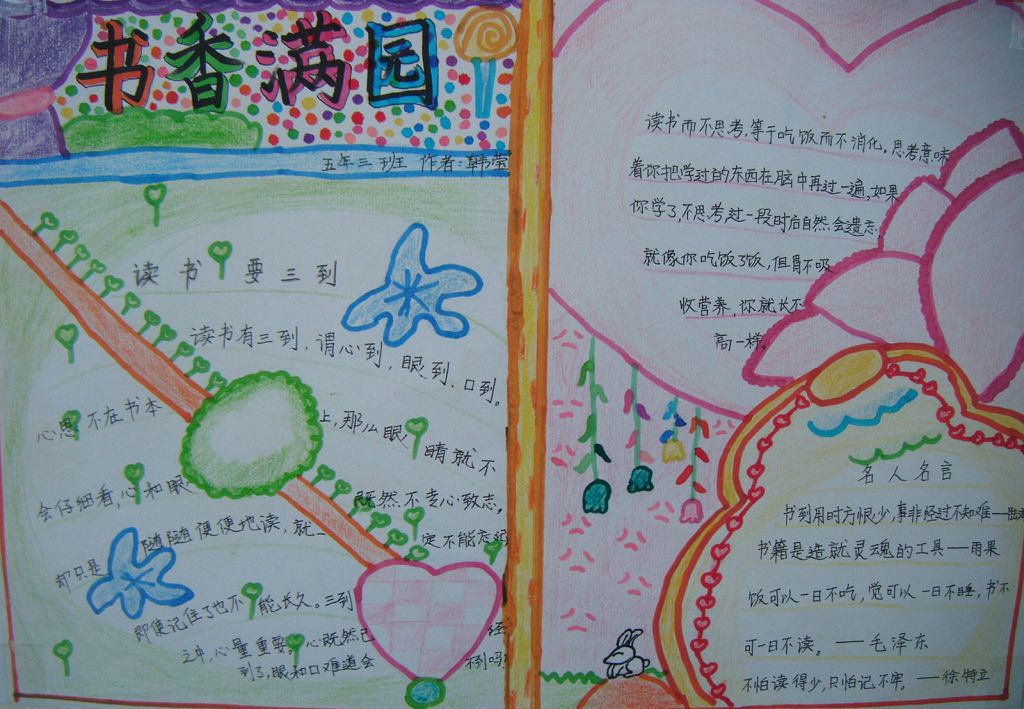 书香满园
五年三班 作者:韩莹
读书要三到
读书有三到,谓心到,眼到、口到。
心思不在书本上,那么眼睛就不
会仔细看,心和眼既然不专心致志,
却只是随随便便地读,就一定不能忘记
即使记住了也不能长久。三到
之中,心量重要。心既然己经
到了,眼和口难道会不到吗
读书而不思考,等于吃饭而不消化,思考意味
着你把学过的东西在脑中再过一遍,如果
你学了,不思考,过一段时后自然会遗忘,
就像你吃饭了饭,但胃不吸
收营养,你就长不
高一样。
名人名言
书到用时方恨少,事非经过不知难——陆游
书籍是造就灵魂的工具——雨果
饭可以一日不吃,觉可以一日不睡,书不
可一日不读。——毛泽东
不怕读得少,只怕记不牢。——徐特立